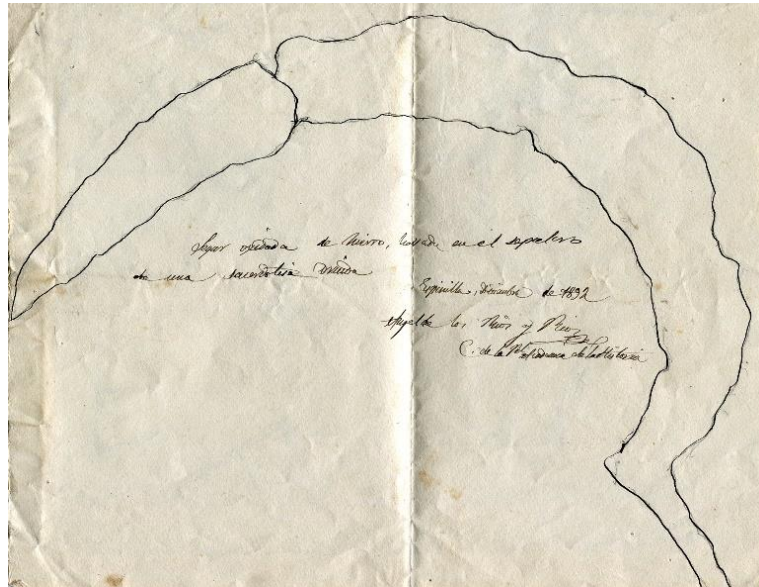 Segur oxidada de hierro, hallada en el sepulcro
de una sacerdotisa druida
Espinilla, Diciembre de 1892
Angel de los Rios y Rios
C. de la Rl. Academia de la Historia